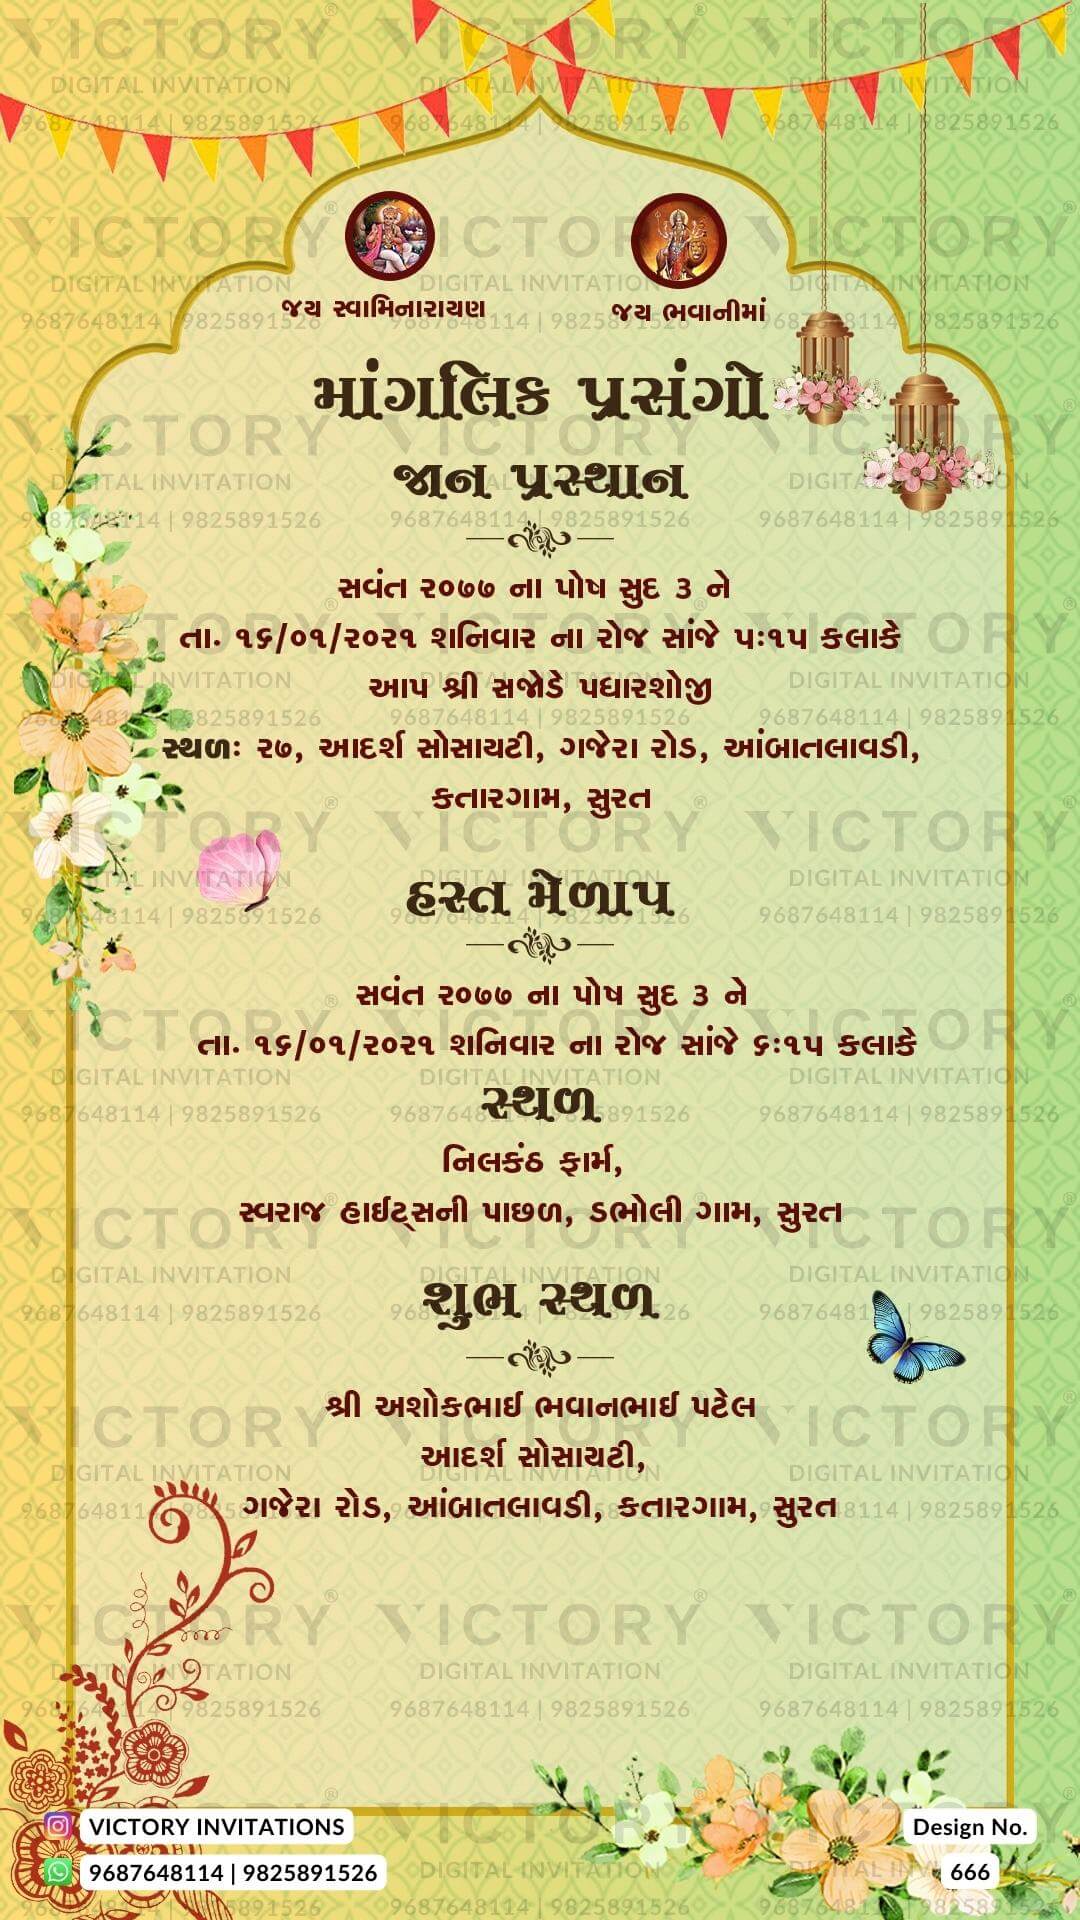 જય સ્વામિનારાયણ
જય ભવાનીમાં
માંગલિક પ્રસંગો
જાન પ્રસ્થાન
સવંત ૨૦૭૭ ના પોષ સુદ ૩ ને
તા. ૧૬/૦૧/૨૦૨૧ શનિવાર ના રોજ સાંજે ૫ઃ૧૫ કલાકે
આપ શ્રી સજોડે પધારશોજી
સ્થળઃ ૨૭, આદર્શ સોસાયટી, ગજેરા રોડ, આંબાતલાવડી,
કતારગામ, સુરત
હસ્ત મેળાપ
સવંત ૨૦૭૭ ના પોષ સુદ ૩ ને
તા. ૧૬/૦૧/૨૦૨૧ શનિવાર ના રોજ સાંજે ૬ઃ૧૫ કલાકે
સ્થળ
નિલકંઠ ફાર્મ,
સ્વરાજ હાઈટ્સની પાછળ, ડભોલી ગામ, સુરત
શુભ સ્થળ
શ્રી અશોકભાઈ ભવાનભાઈ પટેલ
આદર્શ સોસાયટી,
ગજેરા રોડ, આંબાતલાવડી, કતારગામ, સુરત
VICTORY INVITATIONS
9687648114 | 9825891526
Design No.
666
VICTORY®
DIGITAL INVITATION
9687648114 | 9825891526